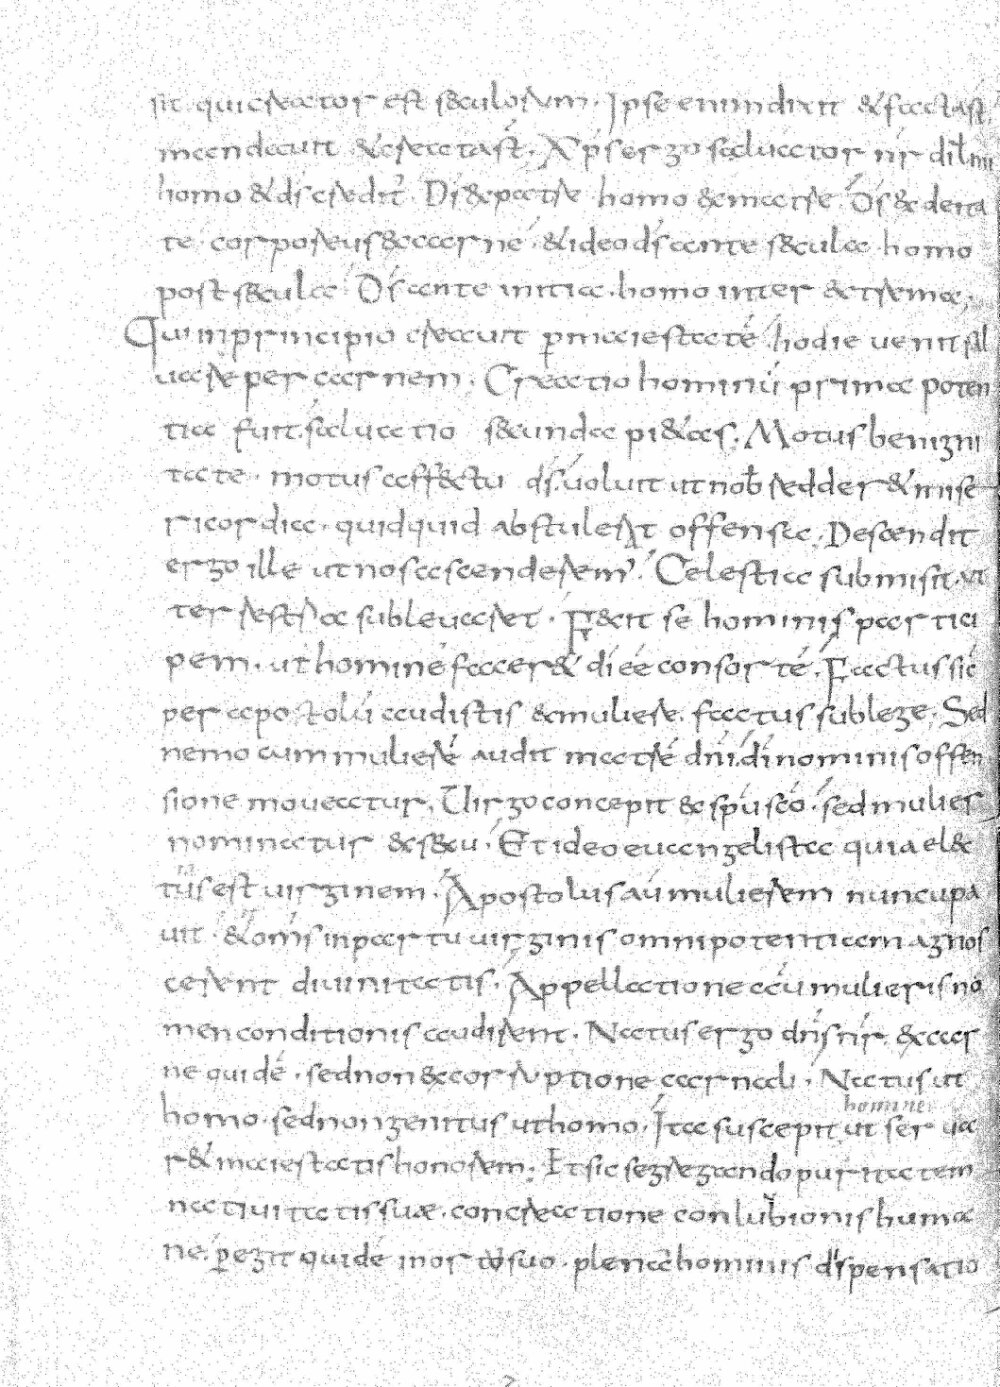 sit qui creator est seculorum. Ipse enim dixit & facta st
mandauit & creata st. Xps ergo saluator nr
homo & ds credit. Ds & patre homo & matre. Ds & deita
te corporeus & carne & ideo ds ante secula homo
post secula. Ds ante initia. homo inter & terna.
Qui in principio creauit p maiestate hodie uenit sal
uare per carnem. Creatio hominu prima poten
tia fuit. saluatio secunda pi&as. Motus benigni
tate motus affectu ds uoluit ut nob redder& mise
ricordia. quidquid abstulerat offensa. Descendit
ergo ille ut nos ascenderem'. Celestia submisit ut
terrestria subleuaret. Fecit se hominis partici
pem. ut homine facer& di ee consorte. Factus sic
per apostolu audistis & muliere. factus sub lege. Sed
nemo cum muliere audit matre dni di nominis offen
sione moueatur. Uirgo concepit & spu sco. sed mulier
nominatur & sexu. Et ideo euangelista quia elec
tus est uirginem. Apostolus au mulierem nuncupa
uit. & oms in partu uirginis omnipotentiam agnos
cerent diuinitatis. Appellatione au mulieris no
men conditionis audirent. Natus ergo dns nr & car
ne quide. sed non & corruptione carnali. Natus ut
homine
homo. sed non genitus ut homo. Ita suscepit ut ser ua
r& maiestatis honorem. Et sic segregando puritatem
natiuitatis suæ. concreatione conlubionis huma
ne. pegit quide in ortu suo. plena hominis dispensatio